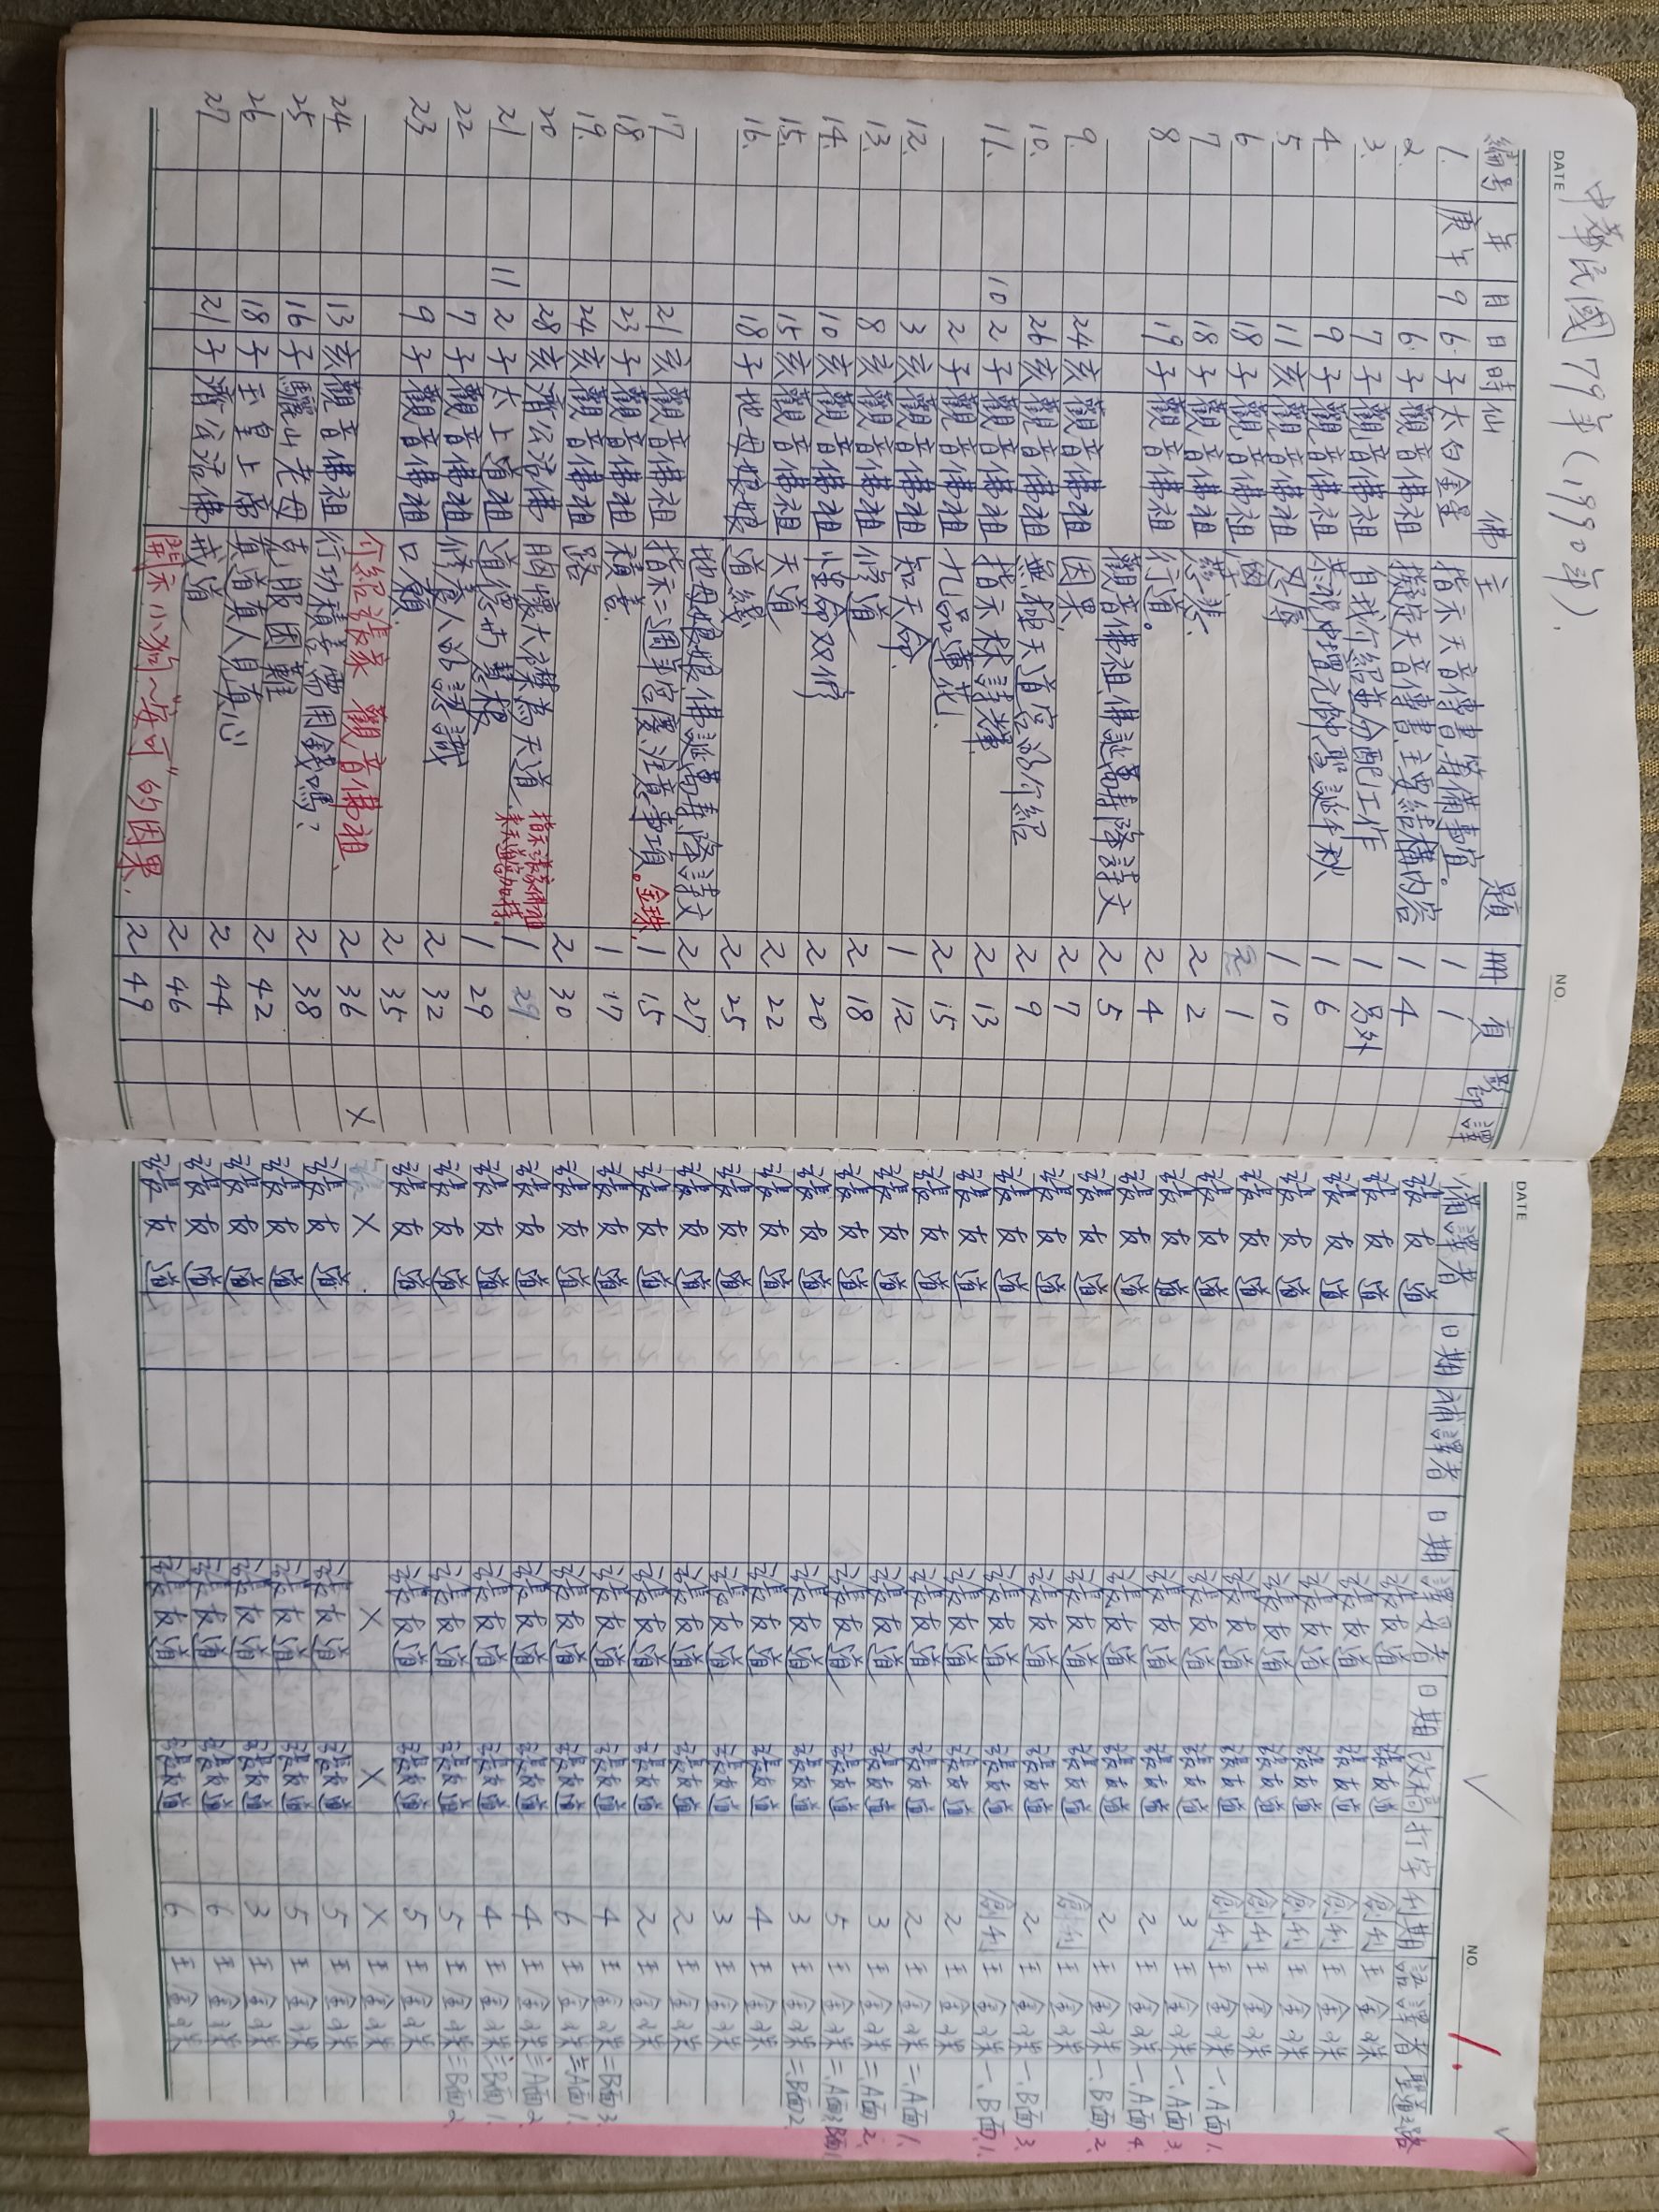 中華民國79年(1990年).
DATE
NO.
編号 年 月 日 時 仙 佛 主 題 冊 頁 影印 譯
1. 庚午 9 6 子 太白金星 指示天音傳書籌備事宜。 1 1
2. 6 子 觀音佛祖 擬於天音傳書主要結構內容 1 4
3. 7 子 觀音佛祖 自我介紹並分配工作 1 另外
4. 9 子 觀音佛祖 恭祝中壇元帥聖誕千秋 1 6
5 11 亥 觀音佛祖 忍辱 1 10
6 18 子 觀音佛祖 1
7 18 子 觀音佛祖 慈悲. 2 2
8 19 子 觀音佛祖 行道。 2 4
觀音佛祖佛誕萬壽降詩文 2 5
9. 24 亥 觀音佛祖 因果. 2 7
10. 26 亥 觀音佛祖 無極天道宮的介紹 2 9
11. 10 2 子 觀音佛祖 指示林詩輝 2 13
2 子 觀音佛祖 九品蓮花. 2 15
12. 3 亥 觀音佛祖 知天命. 1 12
13. 8 亥 觀音佛祖 修道 2 18
14. 10 亥 觀音佛祖 性命双修 2 20
15. 15 亥 觀音佛祖 天道 2 22
16. 18 子 地母娘娘 道緣 2 25
地母娘娘佛誕萬壽降詩文 2 27
17 21 亥 觀音佛祖 指示二週年宮慶注意事項。金珠. 1 15
18 23 子 觀音佛祖 積善 1 17
19. 24 亥 觀音佛祖 路 2 30
20 28 亥 濟公活佛 胸懷大襟為天道. 1 29
指示張家佛祖
來天道宮加持.
21 11 2 子 太上道祖 道德與慧根 1 29
22 7 子 觀音佛祖 修真人的認識 2 32
23 9 子 觀音佛祖 口願 2 35
介紹張家 觀音佛祖、 2 36 X
24 13 亥 觀音佛祖 行功積善需用錢嗎? 2 38
25 16 子 驪山老母 克服困難 2 42
26 18 子 玉皇上帝 真道真人見真心 2 44
27 21 子 濟公活佛 栽道 2 46
開示小狗～"皮可"的因果. 2 49
DATE
NO. 1.
備譯者 日期 補譯者 日期 譯另者 日期 改稿 打字 刊期 語譯者
張女道 張女道 張女道 創刊 王金珠
張女道 張女道 張女道 創刊 王金珠
張女道 張女道 張女道 創刊 王金珠
張女道 張女道 張女道 創刊 王金珠
張女道 張女道 張女道 創刊 王金珠 一.A面1.
張女道 張女道 張女道 3 王金珠 一.A面3.
張女道 張女道 張女道 2 王金珠 一.A面4.
張女道 張女道 張女道 2 王金珠 一.B面2.
張女道 張女道 張女道 創刊 王金珠
張女道 張女道 張女道 2 王金珠 一.B面3.
張女道 張女道 張女道 創刊 王金珠 一.B面1.
張女道 張女道 張女道 2 王金珠
張女道 張女道 張女道 2 王金珠 二.A面1.
張女道 張女道 張女道 3 王金珠 二.A面2.
張女道 張女道 張女道 5 王金珠
張女道 張女道 張女道 3 王金珠 二.B面2.
張女道 張女道 張女道 4 王金珠
張女道 張女道 張女道 3 王金珠
張女道 張女道 張女道 2 王金珠
張女道 張女道 張女道 2 王金珠
張女道 張女道 張女道 4 王金珠 二B面3.
張女道 張女道 張女道 6 王金珠 三A面1.
張女道 張女道 張女道 4 王金珠 三A面2.
張女道 張女道 張女道 4 王金珠 三B面1.
張女道 張女道 張女道 5 王金珠 三B面2.
張女道 張女道 張女道 5 王金珠
X X X X 王金珠
張女道 張女道 張女道 5 王金珠
張女道 張女道 張女道 5 王金珠
張女道 張女道 張女道 3 王金珠
張女道 張女道 張女道 6 王金珠
張女道 張女道 張女道 6 王金珠